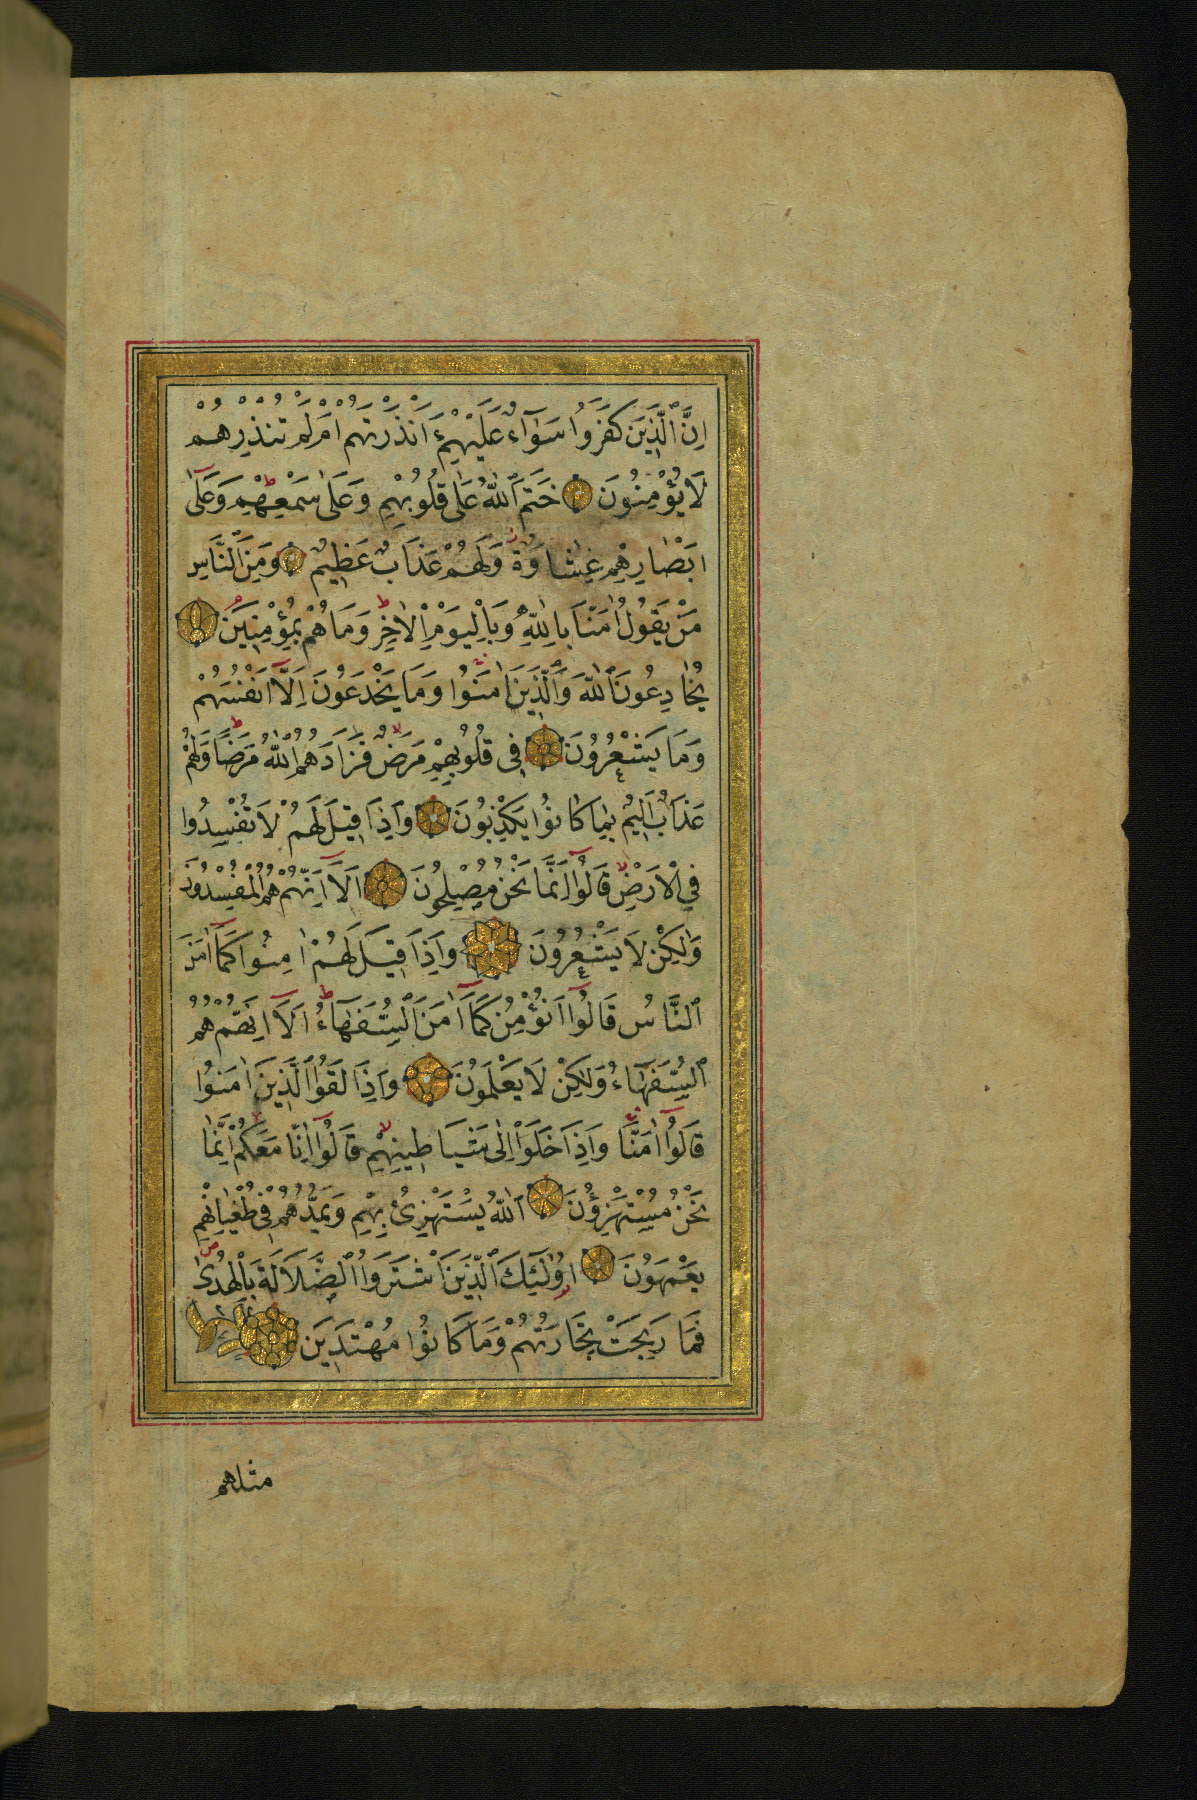 اِنَّ الَّذِينَ كَفَرُوا سَوَآءٌ عَلَيْهِمْ ءَاَنْذَرْتَهُمْ اَمْ لَمْ تُنْذِرْهُمْ
لَا يُؤْمِنُونَ خَتَمَ اللّٰهُ عَلٰى قُلُوبِهِمْ وَعَلٰى سَمْعِهِمْ وَعَلٰٓى
اَبْصَارِهِمْ غِشَاوَةٌ وَلَهُمْ عَذَابٌ عَظِيمٌ وَمِنَ النَّاسِ
مَنْ يَقُولُ اٰمَنَّا بِاللّٰهِ وَبِالْيَوْمِ الْاٰخِرِ وَمَا هُمْ بِمُؤْمِنِينَ
يُخَادِعُونَ اللّٰهَ وَالَّذِينَ اٰمَنُوا وَمَا يَخْدَعُونَ اِلَّٓا اَنْفُسَهُمْ
وَمَا يَشْعُرُونَ فِي قُلُوبِهِمْ مَرَضٌ فَزَادَهُمُ اللّٰهُ مَرَضًا وَلَهُمْ
عَذَابٌ اَلِيمٌ بِمَا كَانُوا يَكْذِبُونَ وَاِذَا قِيلَ لَهُمْ لَا تُفْسِدُوا
فِي الْاَرْضِ قَالُوٓا اِنَّمَا نَحْنُ مُصْلِحُونَ اَلَٓا اِنَّهُمْ هُمُ الْمُفْسِدُونَ
وَلٰكِنْ لَا يَشْعُرُونَ وَاِذَا قِيلَ لَهُمْ اٰمِنُوا كَمَٓا اٰمَنَ
النَّاسُ قَالُوٓا اَنُؤْمِنُ كَمَٓا اٰمَنَ السُّفَهَٓاءُ اَلَٓا اِنَّهُمْ هُمُ
السُّفَهَٓاءُ وَلٰكِنْ لَا يَعْلَمُونَ وَاِذَا لَقُوا الَّذِينَ اٰمَنُوا
قَالُوٓا اٰمَنَّا وَاِذَا خَلَوْا اِلٰى شَيَاطِينِهِمْ قَالُوٓا اِنَّا مَعَكُمْ اِنَّمَا
نَحْنُ مُسْتَهْزِؤُنَ اَللّٰهُ يَسْتَهْزِئُ بِهِمْ وَيَمُدُّهُمْ فِي طُغْيَانِهِمْ
يَعْمَهُونَ اُولٰٓئِكَ الَّذِينَ اشْتَرَوُا الضَّلَالَةَ بِالْهُدٰى
فَمَا رَبِحَتْ تِجَارَتُهُمْ وَمَا كَانُوا مُهْتَدِينَ
مثلهم